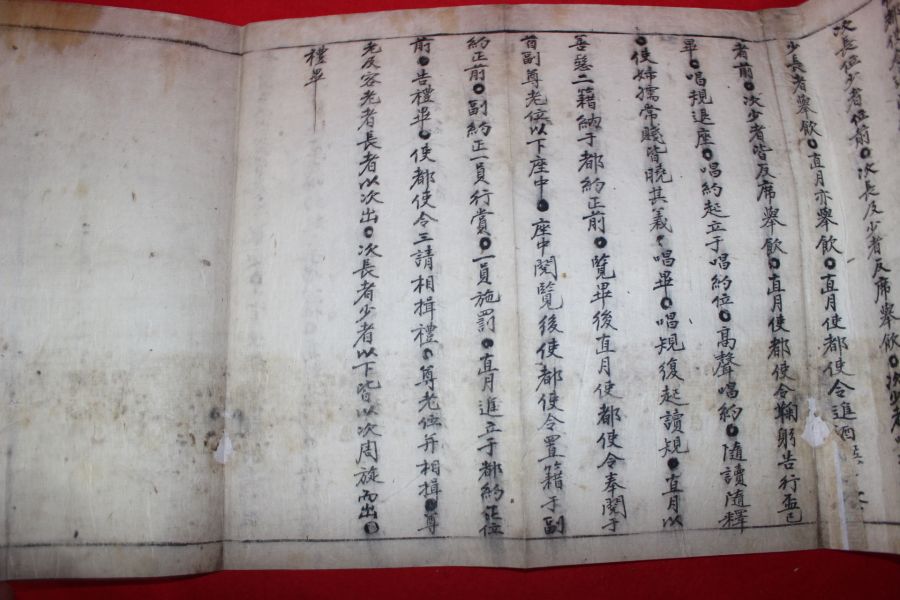 次長位少者位前○次長及少者反席擧飮○次少者
少長者擧飮○直月亦擧飮○直月使都使令進酒
者前○次少者皆反席擧飮○直月使都使令鞠躬告行盃已
畢○唱規退座○唱約起立于唱約位○高聲唱約○隨讀隨釋
○使婦孺常賤皆曉其義○唱畢○唱規復起讀規○直月以
善惡二籍納于都約正前○覽畢後直月使都使令奉閱于
首副尊老位以下座中○座中閱覽後使都使令置籍于副
約正前○副約正一員行賞○一員施罰○直月進立于都約正位
前○告禮畢○使都使令三請相揖禮○尊老位幷相揖○尊
老及客老者長者以次出○次長者少者以下皆以次周旋而出○
禮畢